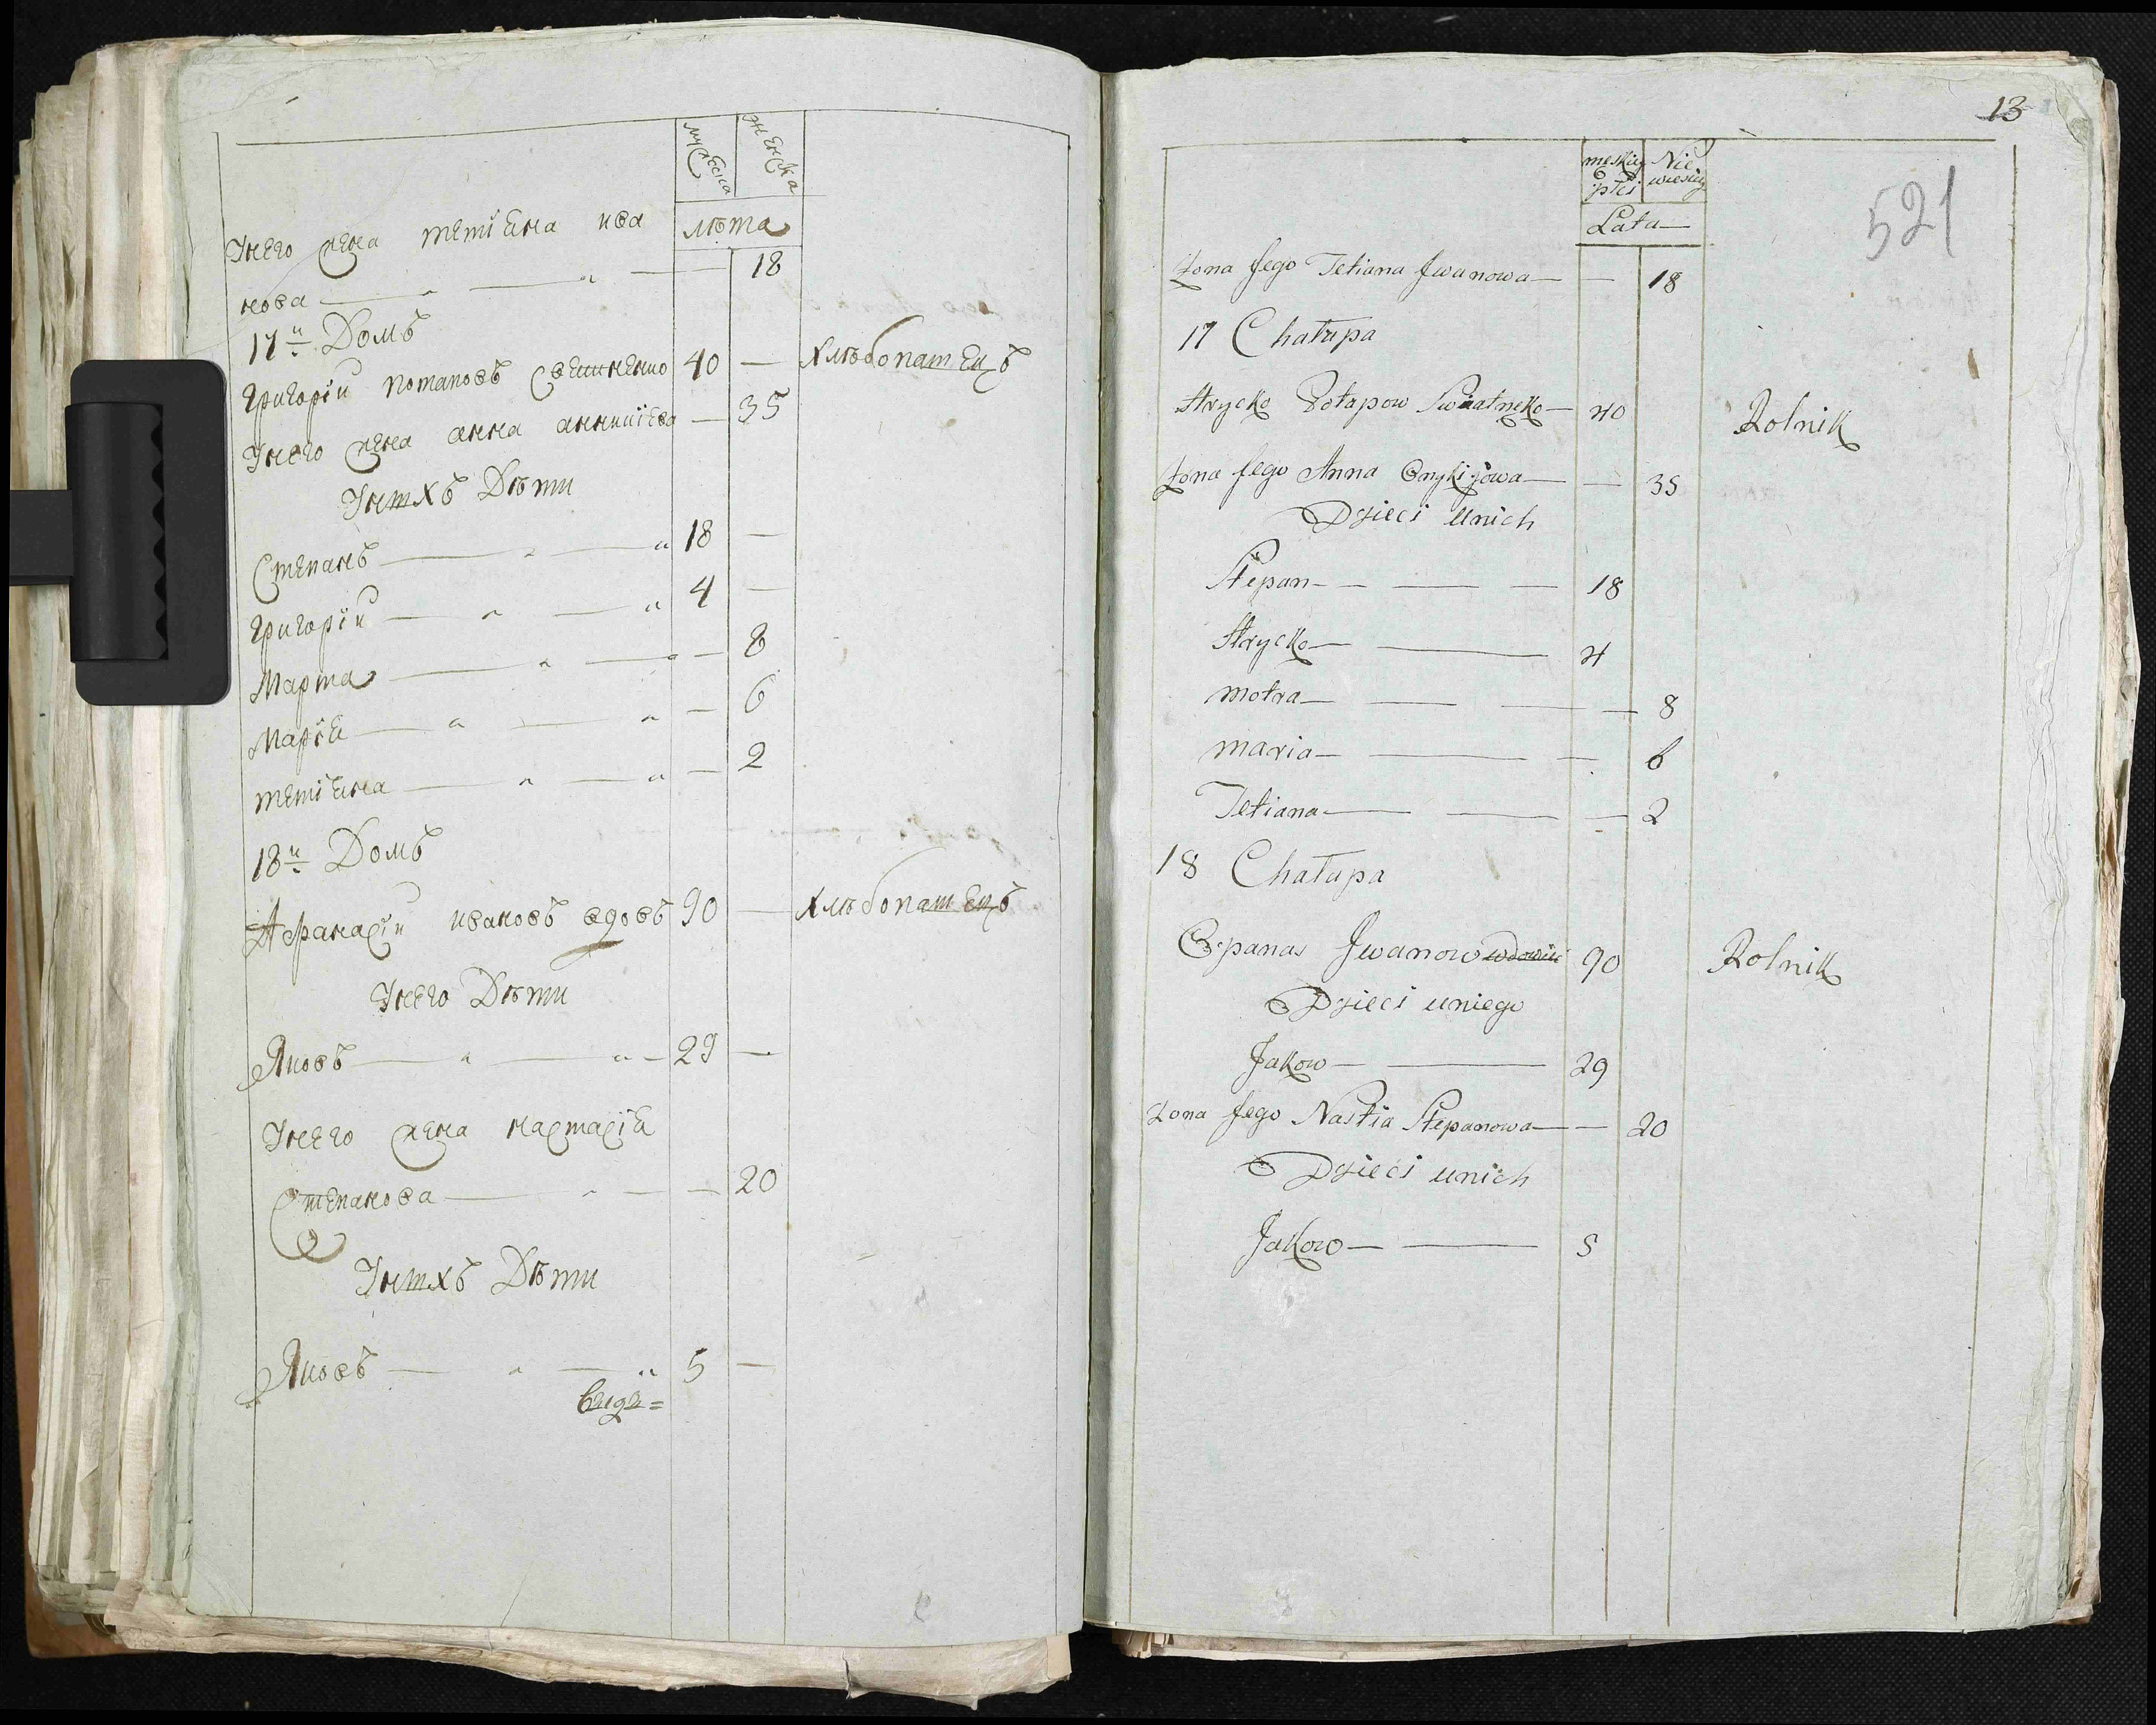 мужеска женска
лѣта
Унего жена тетіяна ива
нова — 18
17й Домъ
Григоріи потаповъ 40 — хлѣбопашецъ
Унего жена анна — 35
Унихъ Дѣти
Степанъ — 18 —
Григоріи — 4 —
Марта — 8
Марія — 6
тетіяна — 2
18й Домъ
Афанасіи ивановъ вдовъ 90 — хлѣбопашецъ
Унего Дѣти
Яковъ — 29 —
Унего жена настасія
Степанова — 20
Унихъ Дѣти
Яковъ — 5 —
13
521
męskiej płci Niewiesciej
Lata
Żona Jego Tetiana Jwanowa — — 18
17 Chałupa
Hrycko Potapow — 40 Rolnik
Żona Jego Anna Onykijowa — — 35
Dzieci unich
Stepan — 18
Hrycko — 4
motra — 8
maria — 6
Tetiana — 2
18 Chałupa
Opanas Jwanow wdowiec 90 Rolnik
Dzieci uniego
Jakow — 29
Żona Jego Nastia Stepanowa — — 20
Dzieci unich
Jakow — 5